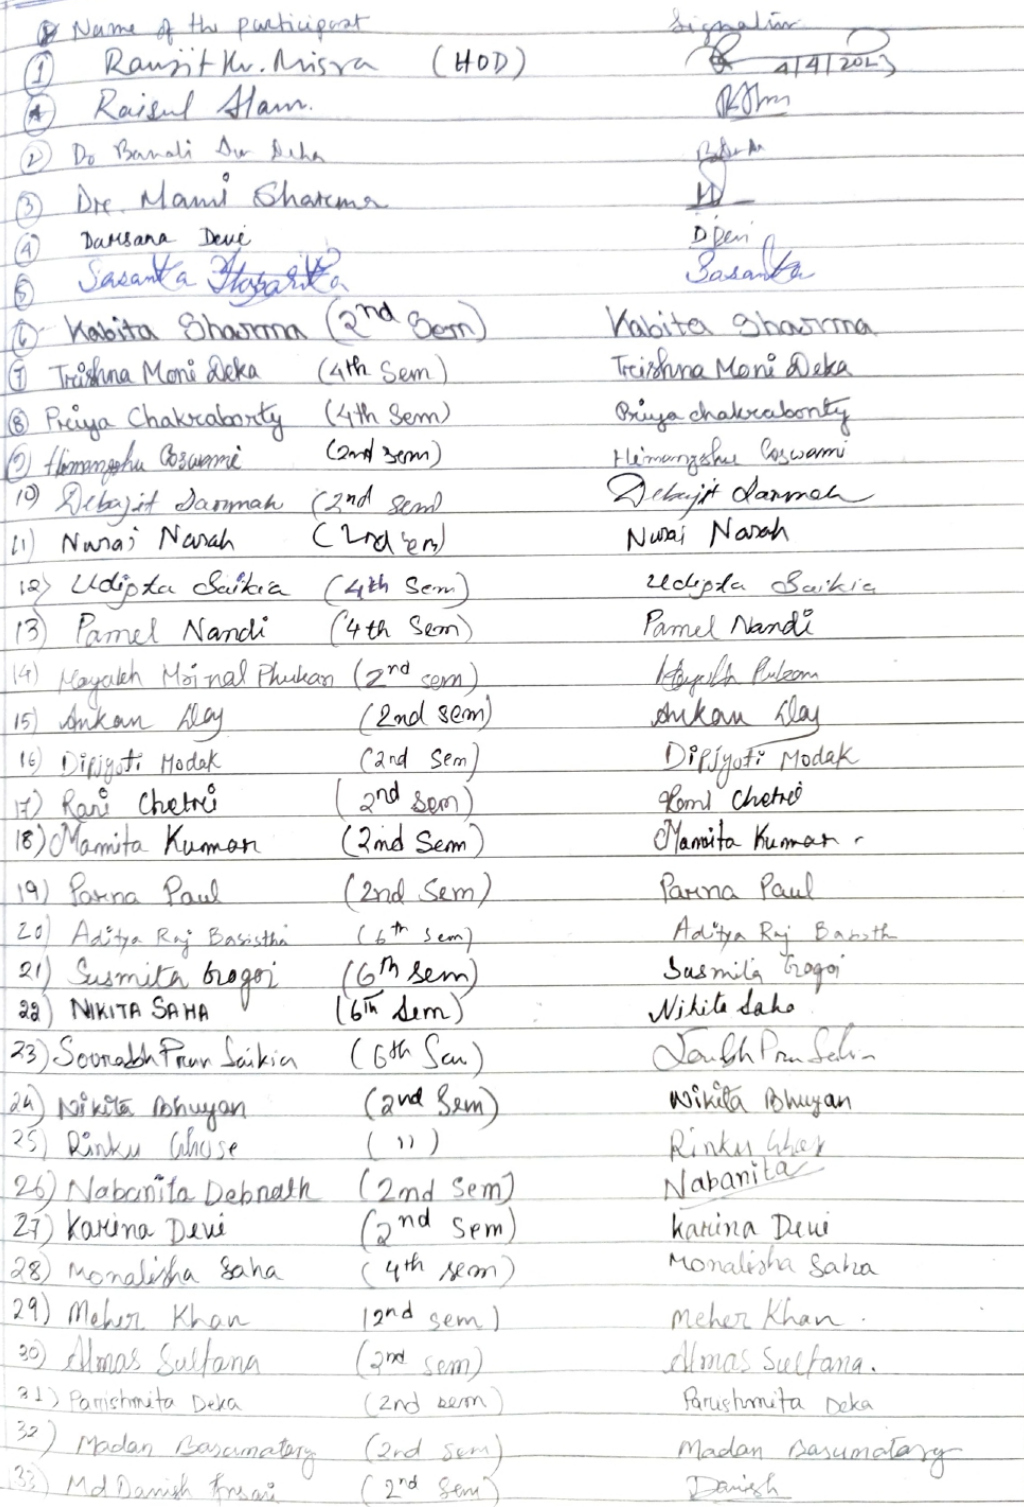 Name of the participant Signature
1 Ranjit Kr. Misra (HOD) 4/4/2023
Raisul Alam.
2 Dr Banali
3 Dr. Mami Sharma
4 Darsana Devi D Devi
5 Sasanka Hazarika Sasanka
6 Kabita Sharma (2nd Sem) Kabita Sharma
7 Trishna Moni Deka (4th Sem) Trishna Moni Deka
8 Priya Chakraborty (4th Sem) Priya Chakraborty
9) Himangshu Goswami (2nd sem) Himangshu Goswami
10) Debajit Sarmah (2nd Sem) Debajit Sarmah
11) Nuraj Narah (2nd sem) Nuraj Narah
12) Udipta Saikia (4th Sem) Udipta Saikia
13) Pamel Nandi (4th Sem) Pamel Nandi
14) Mayukh Mrinal Phukan (2nd sem)
15) Ankan Dey (2nd sem) Ankan Dey
16) Dipjyoti Modak (2nd Sem) Dipjyoti Modak
17) Rani Chetri (2nd sem) Rani Chetri
18) Mamita Kumar (2nd Sem) Mamita Kumar.
19) Parna Paul (2nd Sem) Parna Paul
20) Aditya Raj Basistha (6th Sem) Aditya Raj Basistha
21) Susmita Gogoi (6th sem) Susmita Gogoi
22) NIKITA SAHA (6th Sem) Nikita Saha
23) Sourabh Pran Saikia (6th Sem)
24) Nikita Bhuyan (2nd Sem) Nikita Bhuyan
25) Rinku Ghose ( " ) Rinku Ghose
26) Nabanita Debnath (2nd Sem) Nabanita
27) Karina Devi (2nd Sem) Karina Devi
28) Monalisha Saha (4th sem) Monalisha Saha
29) Meher Khan (2nd sem) Meher Khan.
30) Almas Sultana (2nd sem) Almas Sultana.
31) Parishmita Deka (2nd sem) Parishmita Deka
32) Madan Basumatary (2nd sem) Madan Basumatary
33) Md Danish Ansari (2nd Sem) Danish